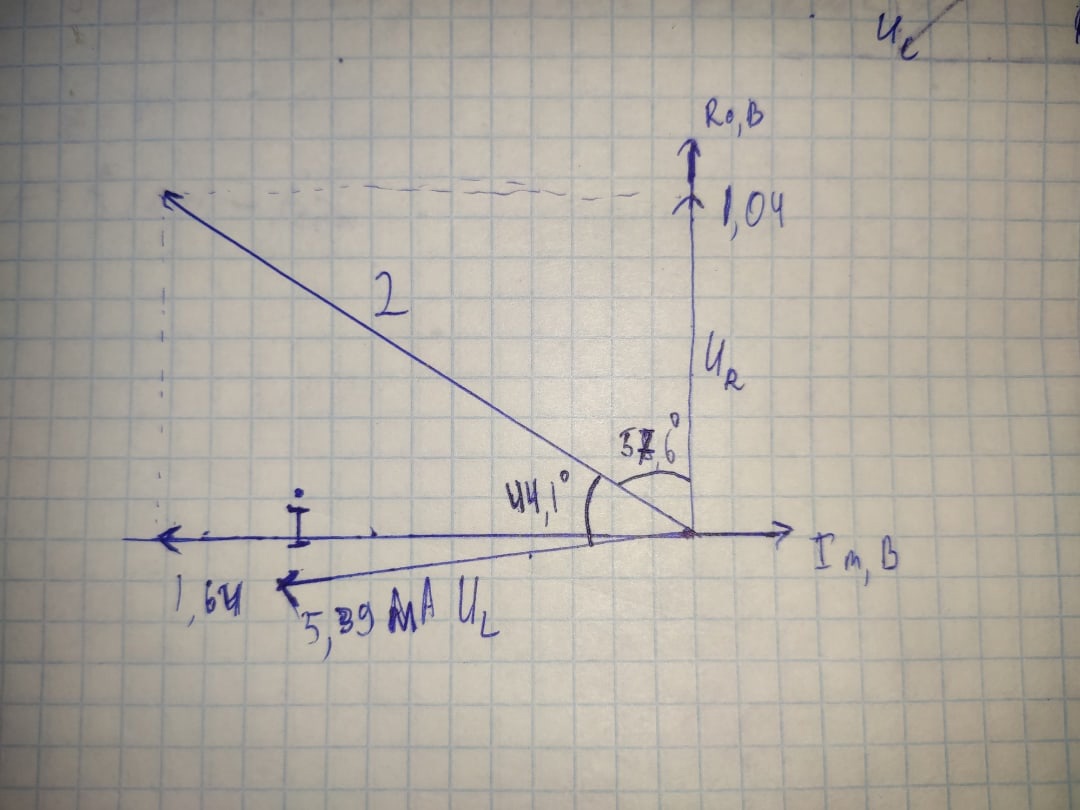 U_C
Re, B
1,04
2
U_R
57,6°
44,1°
İ
Im, B
1,64
5,39 мA U_L